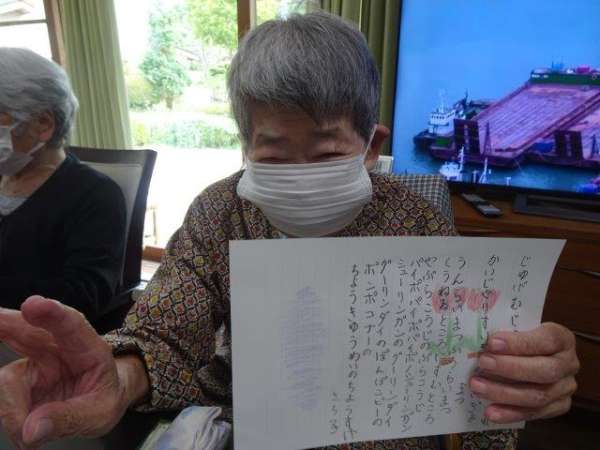 じゅげむじゅ
かいじゃりすい
うんらいまつ
くうねるところにすむところ
やぶらこうじのぶらこうじ
パイポパイポパイポノシューリンガン
シューリンガンのグーリンダイ
グーリンダイのぽんぽこピーの
ポンポコナーの
ちょうきゅうめいのちょうすけ